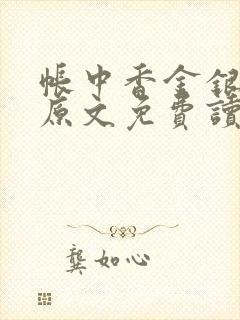 帳中香金銀
原文免費讀
龔如心